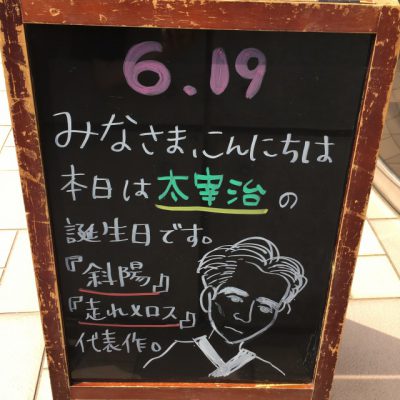 6.19
みなさま、こんにちは
本日は太宰治の
誕生日です。
『斜陽』
『走れメロス』
代表作。